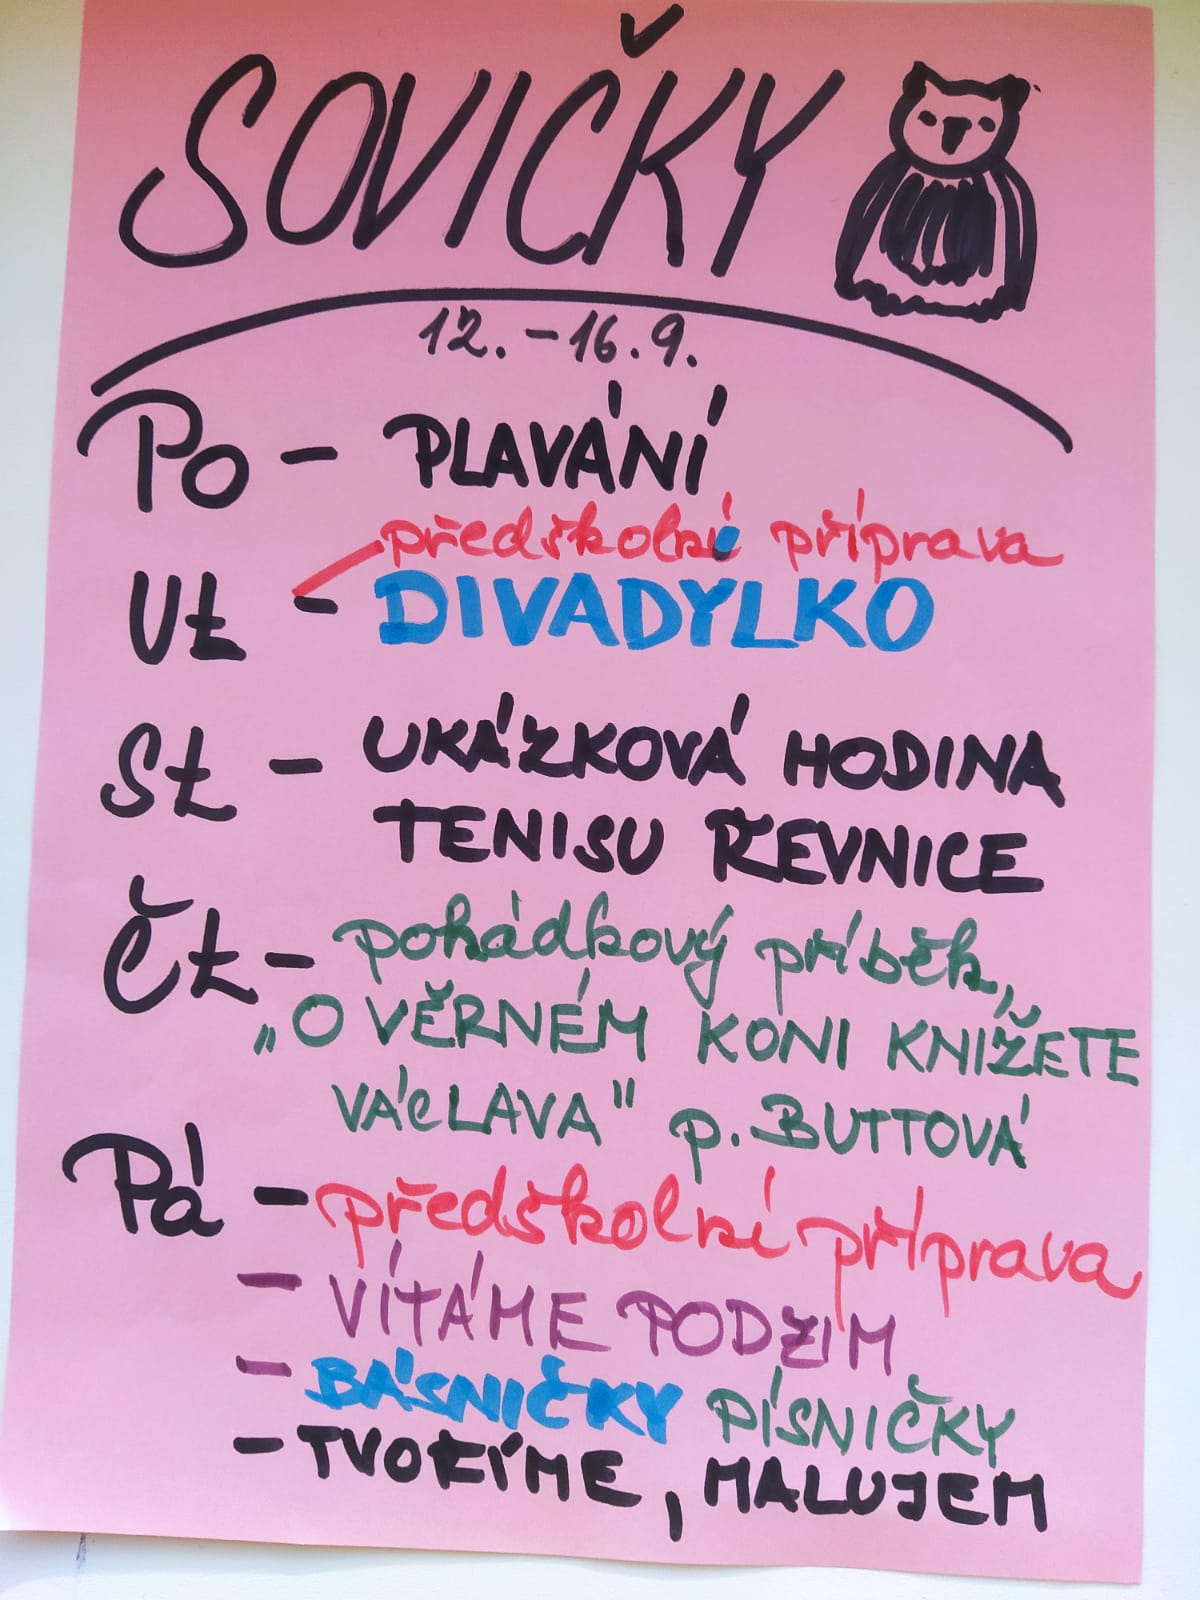 SOVIČKY
12. - 16. 9.
Po - PLAVÁNÍ
předškolní příprava
Út - DIVADYLKO
St - UKÁZKOVÁ HODINA
TENISU ŘEVNICE
Čt - pohádkový příběh,
„O VĚRNÉM KONI KNÍŽETE
VÁCLAVA" p. BUTTOVÁ
Pá - předškolní příprava
- VÍTÁME PODZIM
- BÁSNIČKY PÍSNIČKY
- TVOŘÍME, MALUJEM